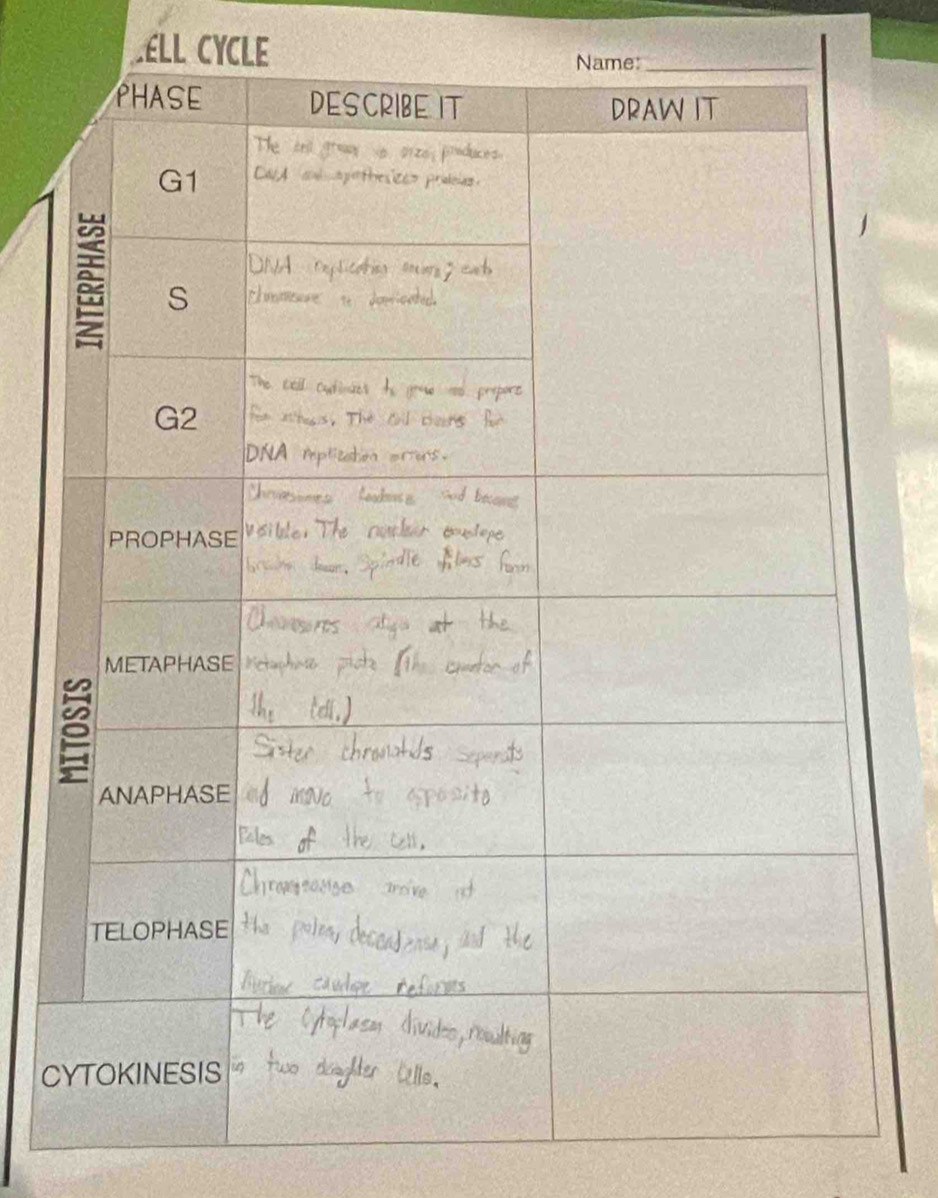 ELL CYCLE
Name:
PHASE
DESCRIBE IT
DRAW IT
INTERPHASE
G1
The cell grows in size, produces
and synthesizes proteins.
S
DNA replication occurs; each
chromosome is duplicated.
G2
The cell continues to grow and prepare
for mitosis. The cell checks for
DNA replication errors.
MITOSIS
PROPHASE
Chromosomes and become
visible. The nuclear envelope
breaks down. Spindle fibers form
METAPHASE
Chromosomes align at the
metaphase plate (the equator of
the cell.)
ANAPHASE
Sister chromatids
and move to opposite
Poles of the cell.
TELOPHASE
Chromosomes arrive at
the poles, decondense, and the
Nuclear reforms
CYTOKINESIS
The Cytoplasm divides, resulting
in two daughter cells.